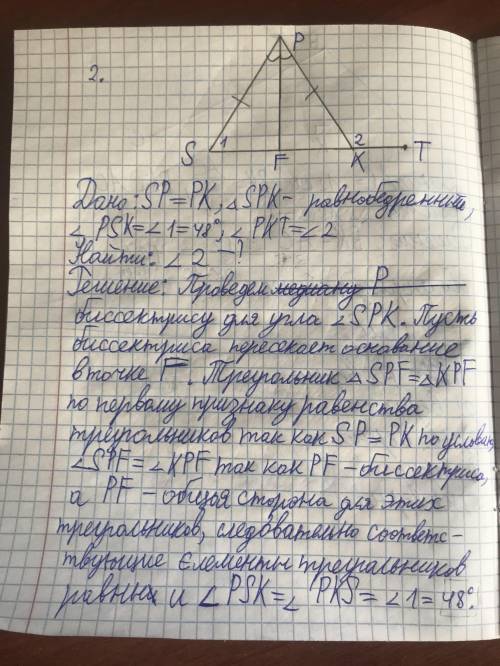 2.
P
S 1 F 2 K T
Дано: SP=PK, △SPK- равнобедренный,
∠PSK=∠1=48°, ∠PKT=∠2
Найти: ∠2-?
Решение: Проведем медиану P
биссектрису для угла ∠SPK. Пусть
биссектриса пересекает основание
в точке F. Треугольник △SPF=△KPF
по первому признаку равенства
треугольников так как SP=PK по условию,
∠SPF=∠KPF так как PF-биссектриса,
а PF-общая сторона для этих
треугольников, следовательно соответс-
твующие елементы треугольников
равны и ∠PSK=∠PKS=∠1=48°.